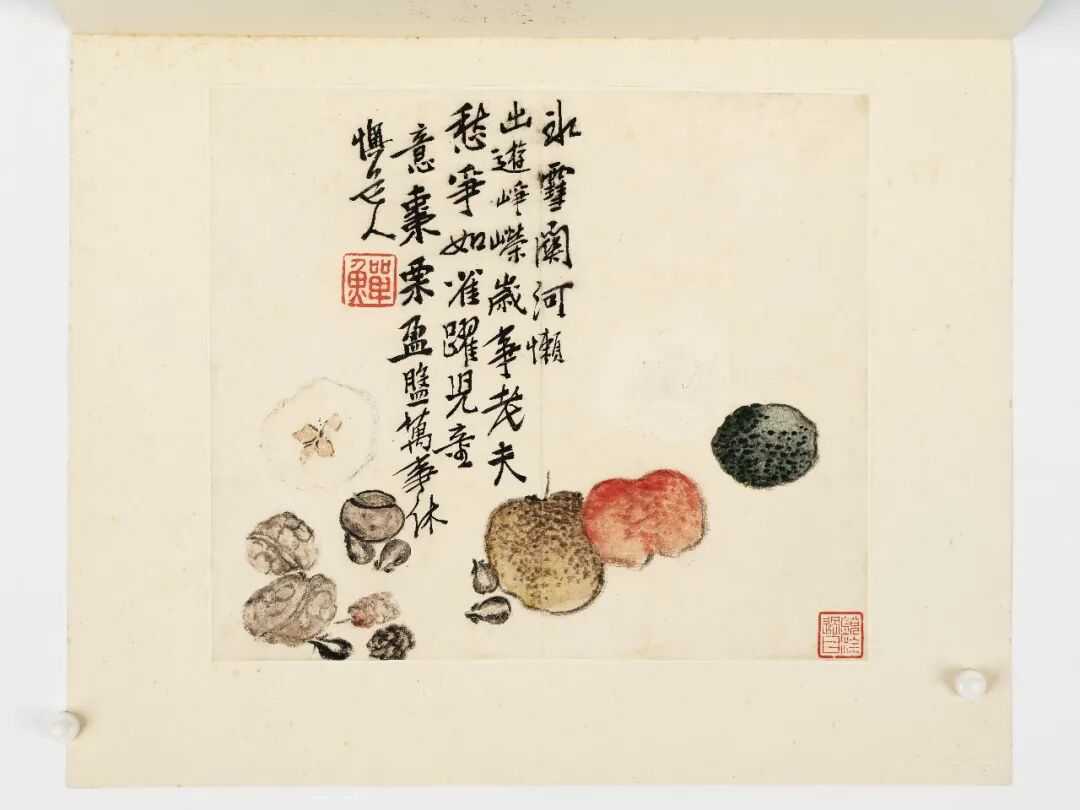 氷雪關河懶
出遊崢嶸歲事老夫
愁爭如雀躍兒童
意棗栗盈盤萬事休
懊道人
鱓